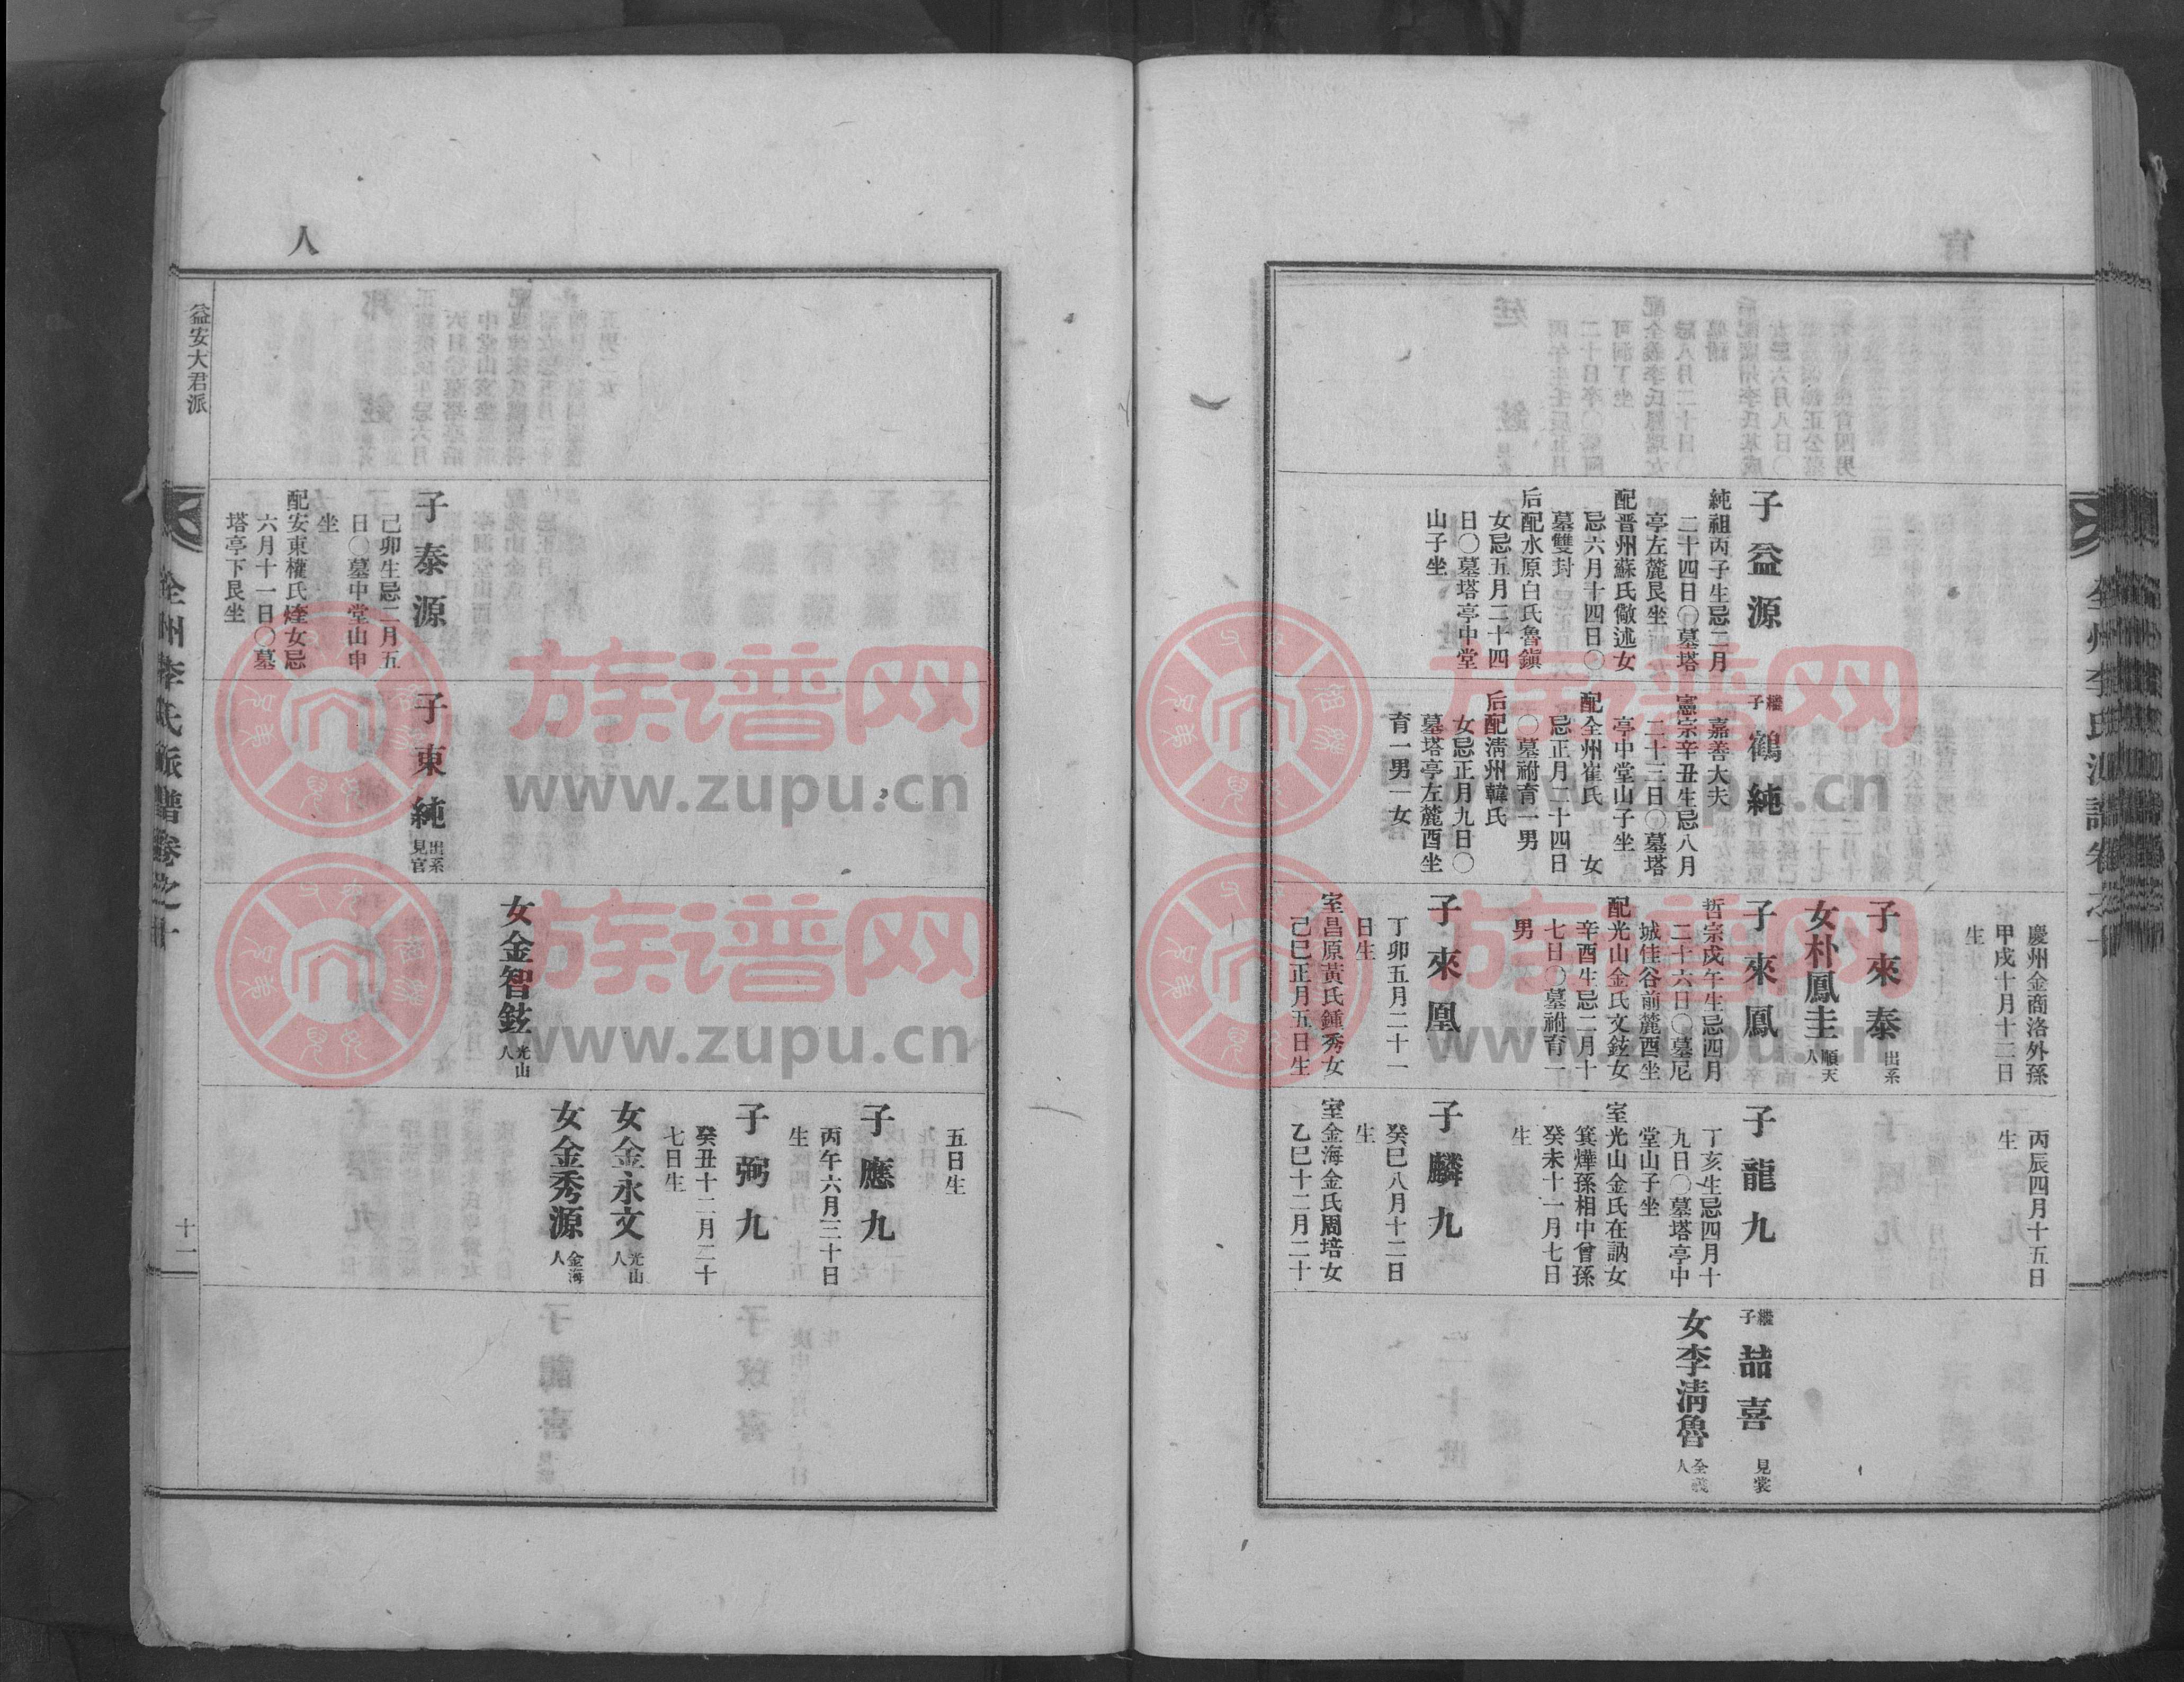 全州李氏派譜卷之十
慶州金商洛外孫
甲戌十月十二日
生
丙辰四月十五日
生
子益源
純祖丙子生忌二月
二十四日〇墓塔
亭左麓艮坐
配晋州蘇氏儆述女
忌六月十四日〇
墓雙封
后配水原白氏魯鎭
女忌五月二十四
日〇墓塔亭中堂
山子坐
繼子鶴純
嘉善大夫
憲宗辛丑生忌八月
二十三日〇墓塔
亭中堂山子坐
配全州崔氏 女
忌正月二十四日
〇墓祔育一男
后配淸州韓氏
女忌正月九日〇
墓塔亭左麓酉坐
育一男一女
子來泰 出系
女朴鳳圭 順天人
子來鳳
哲宗戊午生忌四月
二十六日〇墓尼
城佳谷前麓酉坐
配光山金氏文鉉女
辛酉生忌二月十
七日〇墓祔育一
男
子來凰
丁卯五月二十一
日生
室昌原黃氏鍾秀女
己巳正月五日生
子龍九
丁亥生忌四月十
九日〇墓塔亭中
堂山子坐
室光山金氏在訥女
箕燁孫相中曾孫
癸未十一月七日
生
子麟九
癸巳八月十二日
生
室金海金氏周培女
乙巳十二月二十
繼子喆喜 見裳
女李淸魯 全義人
五日生
子應九
丙午六月三十日
生
子弼九
癸丑十二月二十
七日生
女金永文 光山人
女金秀源 金海人
女金智鉉 光山人
子泰源
己卯生忌二月五
日〇墓中堂山申
坐
配安東權氏烇女忌
六月十一日〇墓
塔亭下艮坐
子東純 出系見官
人
益安大君派
全州李氏派譜卷之十
十一
族谱网
www.zupu.cn
族谱网
www.zupu.cn
族谱网
www.zupu.cn
族谱网
www.zupu.cn